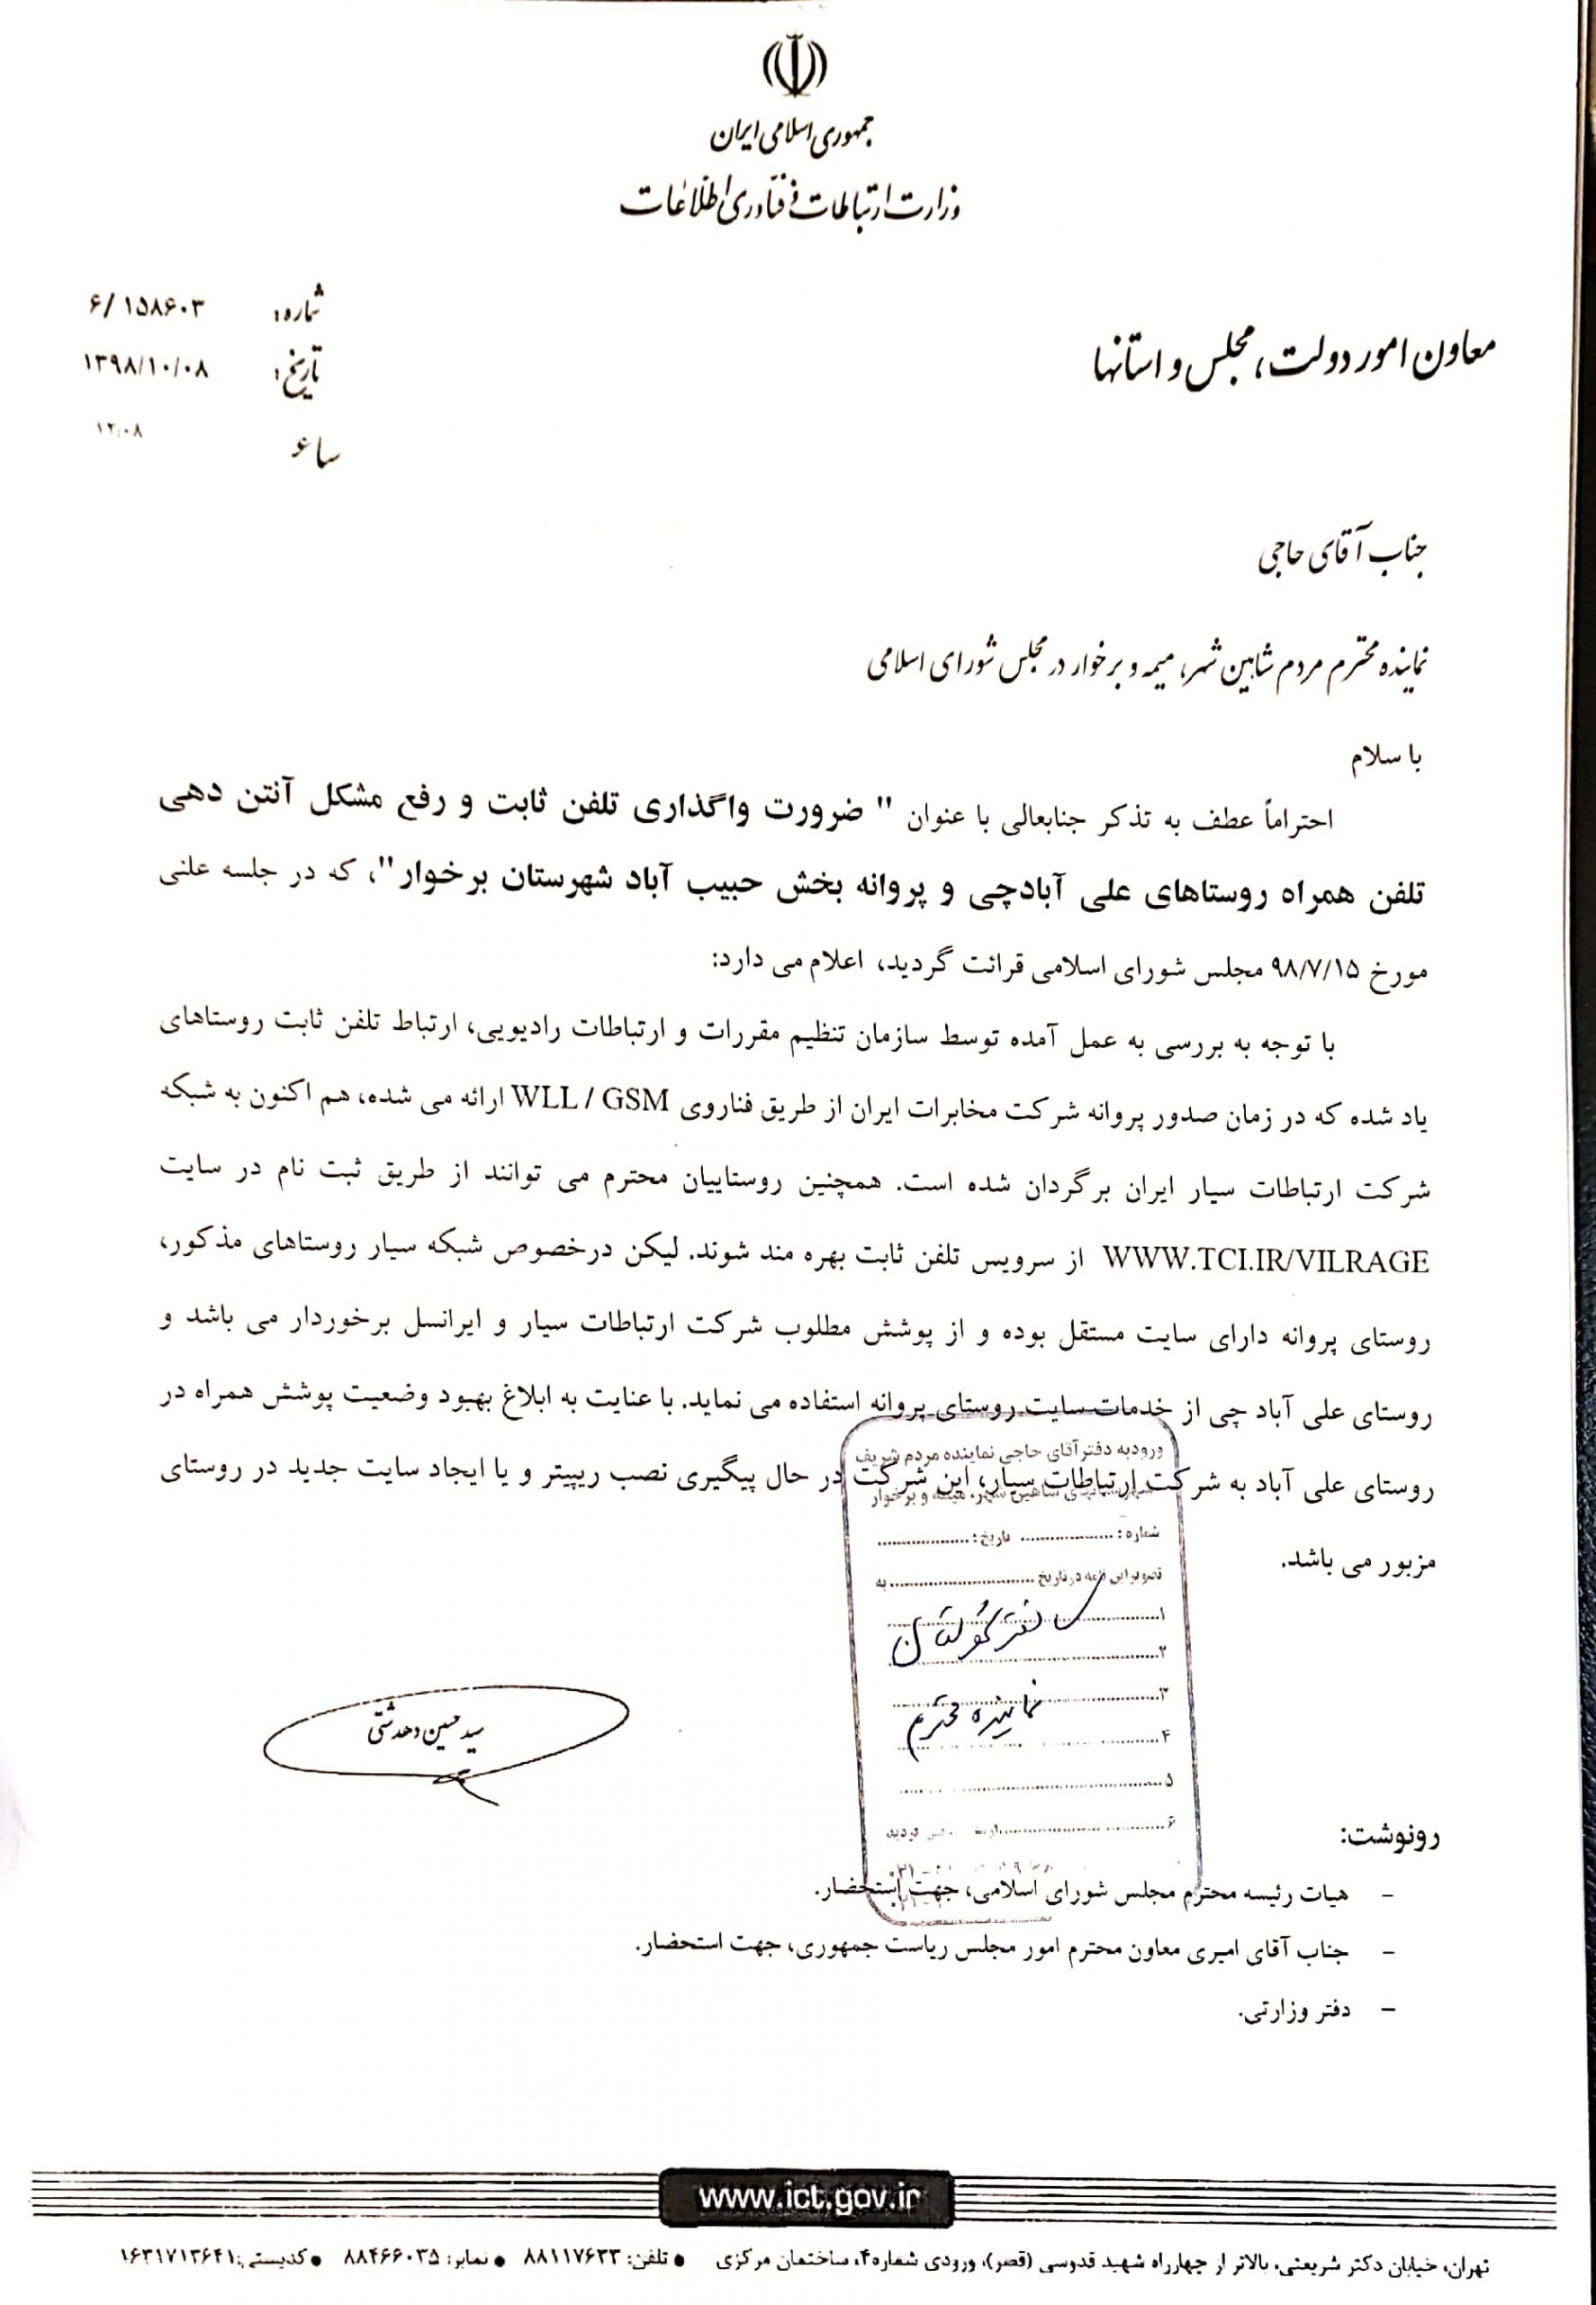 جمهوری اسلامی ایران
وزارت ارتباطات و فنّاوری اطّلاعات
شماره: ۶/۱۵۸۶۰۳
تاریخ: ۱۳۹۸/۱۰/۰۸
۱۲:۰۸
معاون امور دولت، مجلس و استانها
جناب آقای حاجی
نماینده محترم مردم شاهین شهر، میمه و برخوار در مجلس شورای اسلامی
با سلام
احتراماً عطف به تذکر جنابعالی با عنوان " ضرورت واگذاری تلفن ثابت و رفع مشکل آنتن دهی
تلفن همراه روستاهای علی آبادچی و پروانه بخش حبیب آباد شهرستان برخوار"، که در جلسه علنی
مورخ ۹۸/۷/۱۵ مجلس شورای اسلامی قرائت گردید، اعلام می دارد:
با توجه به بررسی به عمل آمده توسط سازمان تنظیم مقررات و ارتباطات رادیویی، ارتباط تلفن ثابت روستاهای
یاد شده که در زمان صدور پروانه شرکت مخابرات ایران از طریق فناروی WLL / GSM ارائه می شده، هم اکنون به شبکه
شرکت ارتباطات سیار ایران برگردان شده است. همچنین روستاییان محترم می توانند از طریق ثبت نام در سایت
WWW.TCI.IR/VILRAGE از سرویس تلفن ثابت بهره مند شوند. لیکن درخصوص شبکه سیار روستاهای مذکور،
روستای پروانه دارای سایت مستقل بوده و از پوشش مطلوب شرکت ارتباطات سیار و ایرانسل برخوردار می باشد و
روستای علی آباد چی از خدمات سایت روستای پروانه استفاده می نماید. با عنایت به ابلاغ بهبود وضعیت پوشش همراه در
روستای علی آباد به شرکت ارتباطات سیار، این شرکت در حال پیگیری نصب ریپیتر و یا ایجاد سایت جدید در روستای
مزبور می باشد.
ورود به دفتر آقای حاجی نماینده مردم شریف
شاهین شهر، میمه و برخوار
شماره: .................. تاریخ: ..................
تصویر این نامه در تاریخ .......................... به
۱
۲
۳
نماینده محترم
۴
۵
۶
سید حسین دهدشتی
رونوشت:
- هیات رئیسه محترم مجلس شورای اسلامی، جهت استحضار.
- جناب آقای امیری معاون محترم امور مجلس ریاست جمهوری، جهت استحضار.
- دفتر وزارتی.
www.ict.gov.ir
تهران، خیابان دکتر شریعتی، بالاتر از چهارراه شهید قدوسی (قصر)، ورودی شماره۴، ساختمان مرکزی • تلفن: ۸۸۱۱۷۶۳۳ • نمابر: ۸۸۴۶۶۰۳۵ • کدپستی: ۱۶۳۱۷۱۳۶۴۱